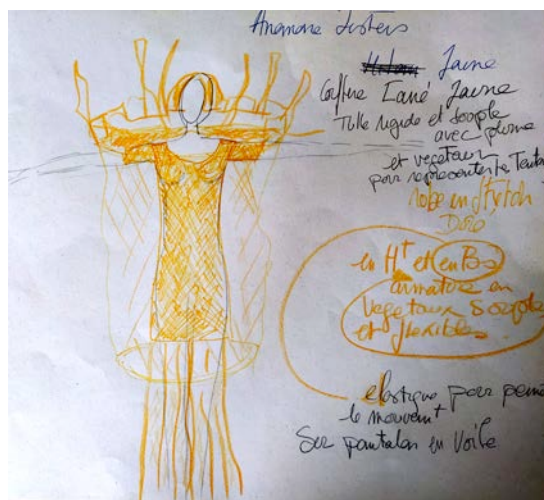 Anemone Sisters
Jaune
Coiffure Carré Jaune
Tulle rigide et souple
avec plume
et vegetaux
pour representer les Tenta
robe en stretch
Doré
en Ht et en Bas
armature en
Vegetaux Souple
et flexibles
elastique pour
le mouvemt
Sur pantalon en Voile